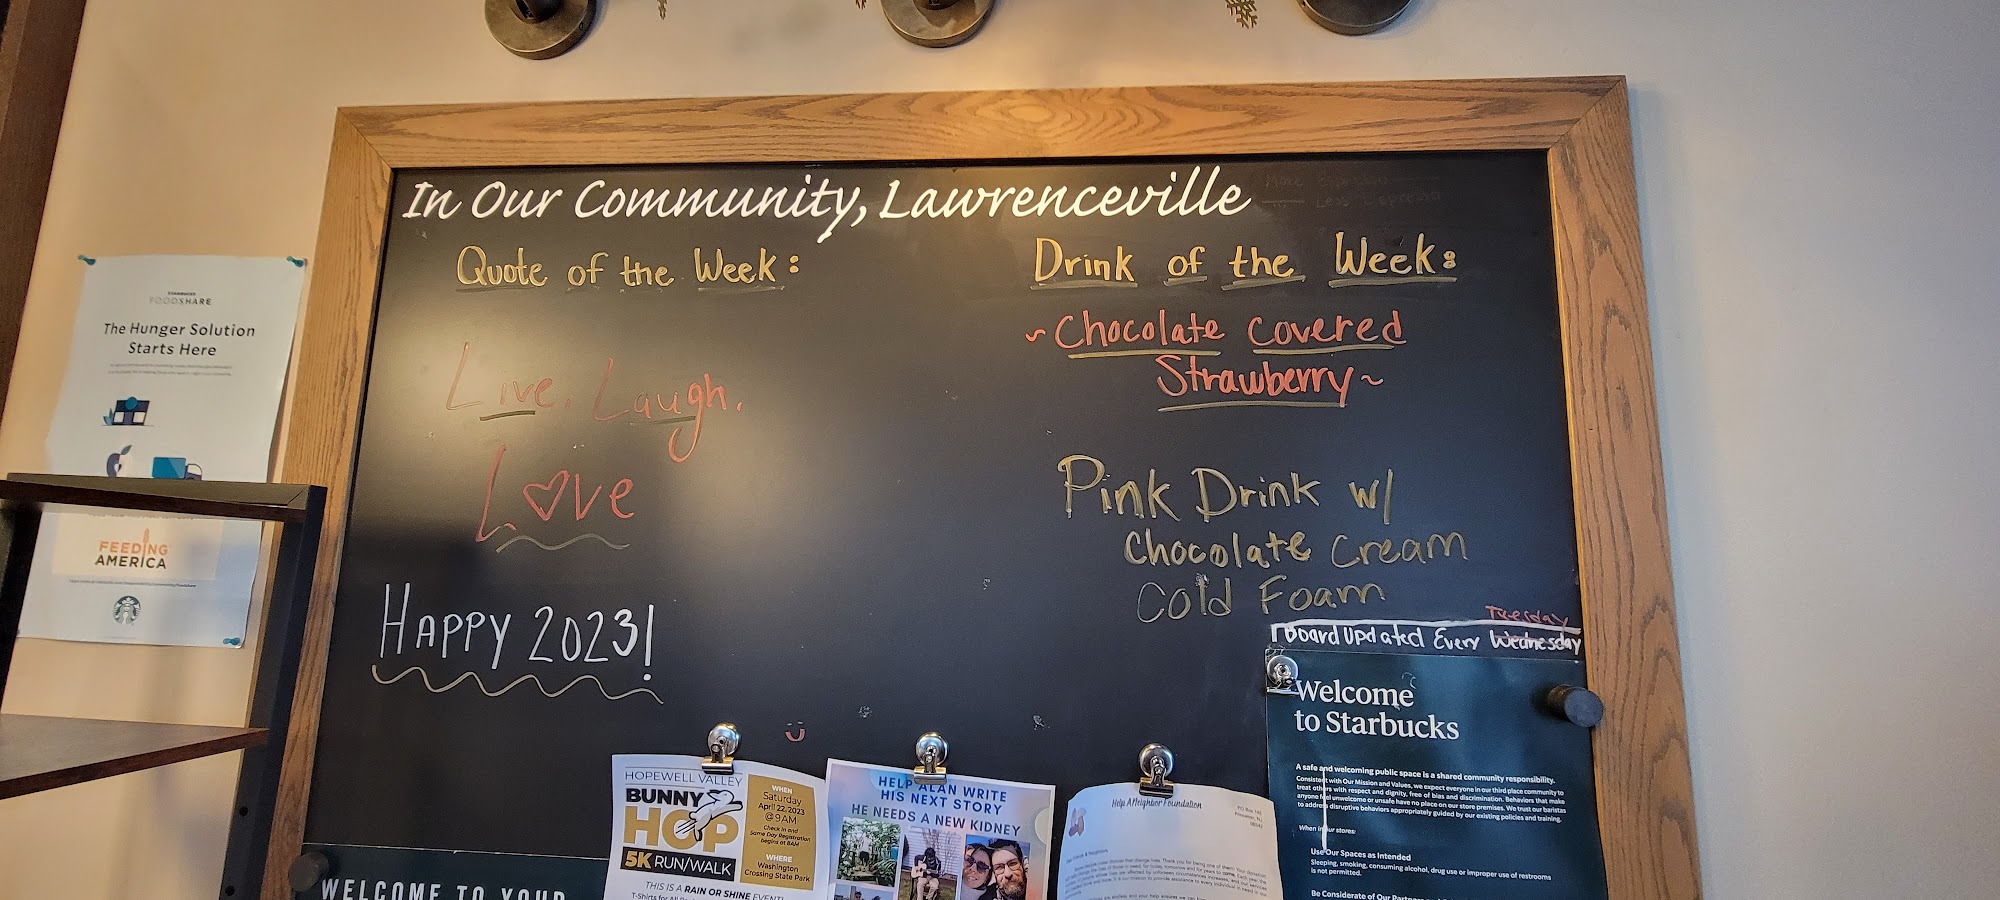 In Our Community, Lawrenceville
Quote of the Week:
Live. Laugh.
Love
Happy 2023!
Drink of the Week:
~Chocolate Covered
Strawberry~
Pink Drink w/
Chocolate Cream
Cold Foam
Tuesday
Board Updated Every Wednesday
STARBUCKS
FOODSHARE
The Hunger Solution
Starts Here
FEEDING
AMERICA
WELCOME TO YOUR
HOPEWELL VALLEY
BUNNY
HOP
5K RUN/WALK
THIS IS A RAIN OR SHINE EVENT!
WHEN
Saturday
April 22, 2023
@ 9 AM
Check in and
Same Day Registration
begins at 8AM
WHERE
Washington
Crossing State Park
HELP ALAN WRITE
HIS NEXT STORY
HE NEEDS A NEW KIDNEY
Help A Neighbor Foundation
Welcome
to Starbucks
A safe and welcoming public space is a shared community responsibility.
Consistent with Our Mission and Values, we expect everyone in our third place community to
treat others with respect and dignity, free of bias and discrimination. Behaviors that make
anyone feel unwelcome or unsafe have no place on our store premises. We trust our baristas
to address disruptive behaviors appropriately guided by our existing policies and training.
When in our stores:
Use Our Spaces as Intended
Sleeping, smoking, consuming alcohol, drug use or improper use of restrooms
is not permitted.
Be Considerate of Our